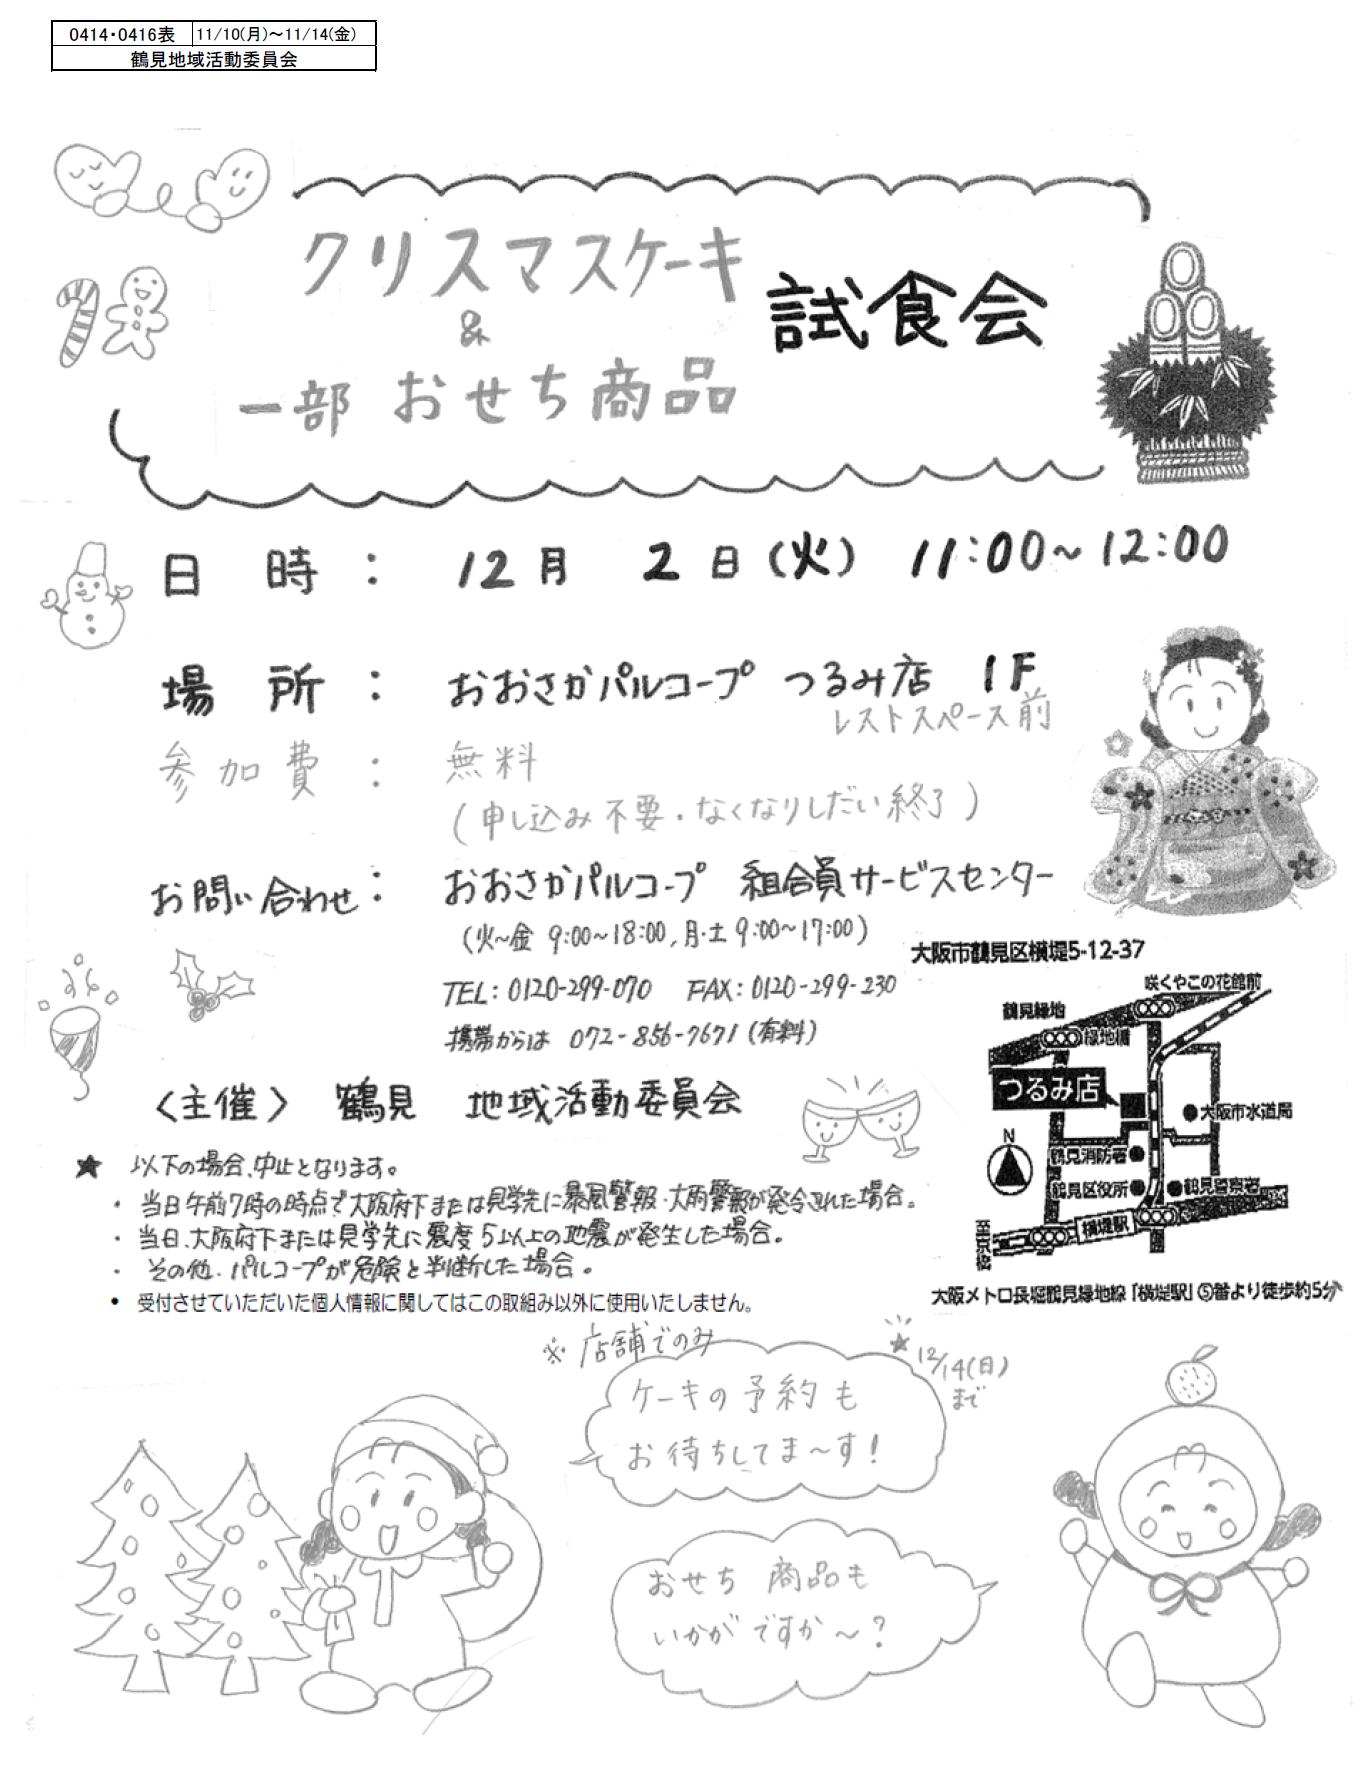 0414・0416表 11/10(月)～11/14(金)
鶴見地域活動委員会
クリスマスケーキ
&
一部 おせち商品
試食会
日時： 12月 2日(火) 11:00～12:00
場所： おおさかパルコープ つるみ店 1F
レストスペース前
参加費： 無料
(申し込み不要・なくなりしだい終了)
お問い合わせ： おおさかパルコープ 組合員サービスセンター
(火～金 9:00～18:00, 月・土 9:00～17:00)
TEL：0120-299-070 FAX：0120-299-230
携帯からは 072-856-7671 (有料)
〈主催〉 鶴見 地域活動委員会
大阪市鶴見区横堤5-12-37
咲くやこの花館前
鶴見緑地
緑地橋
つるみ店
大阪市水道局
N
鶴見消防署
鶴見区役所
鶴見警察署
横堤駅
至京橋
大阪メトロ長堀鶴見緑地線「横堤駅」⑤番より徒歩約5分
★ 以下の場合、中止となります。
・当日午前7時の時点で大阪府下または見学先に暴風警報・大雨警報が発令された場合。
・当日、大阪府下または見学先に震度5以上の地震が発生した場合。
・その他、パルコープが危険と判断した場合。
• 受付させていただいた個人情報に関してはこの取組み以外に使用いたしません。
※店舗でのみ
★12/14(日)
まで
ケーキの予約も
お待ちしてま～す!
おせち 商品も
いかがですか～?